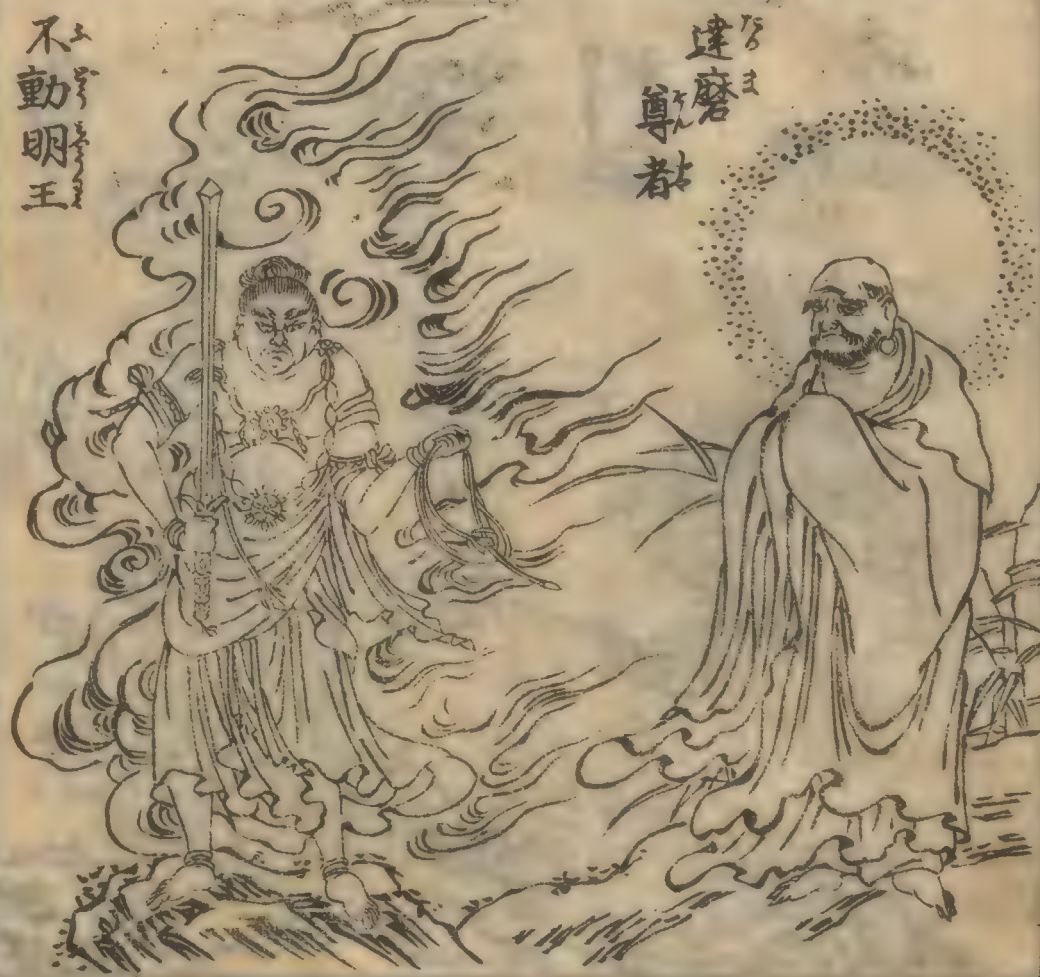 達磨
尊者
だるま
そんじや
不動明王
ふどうみやうわう